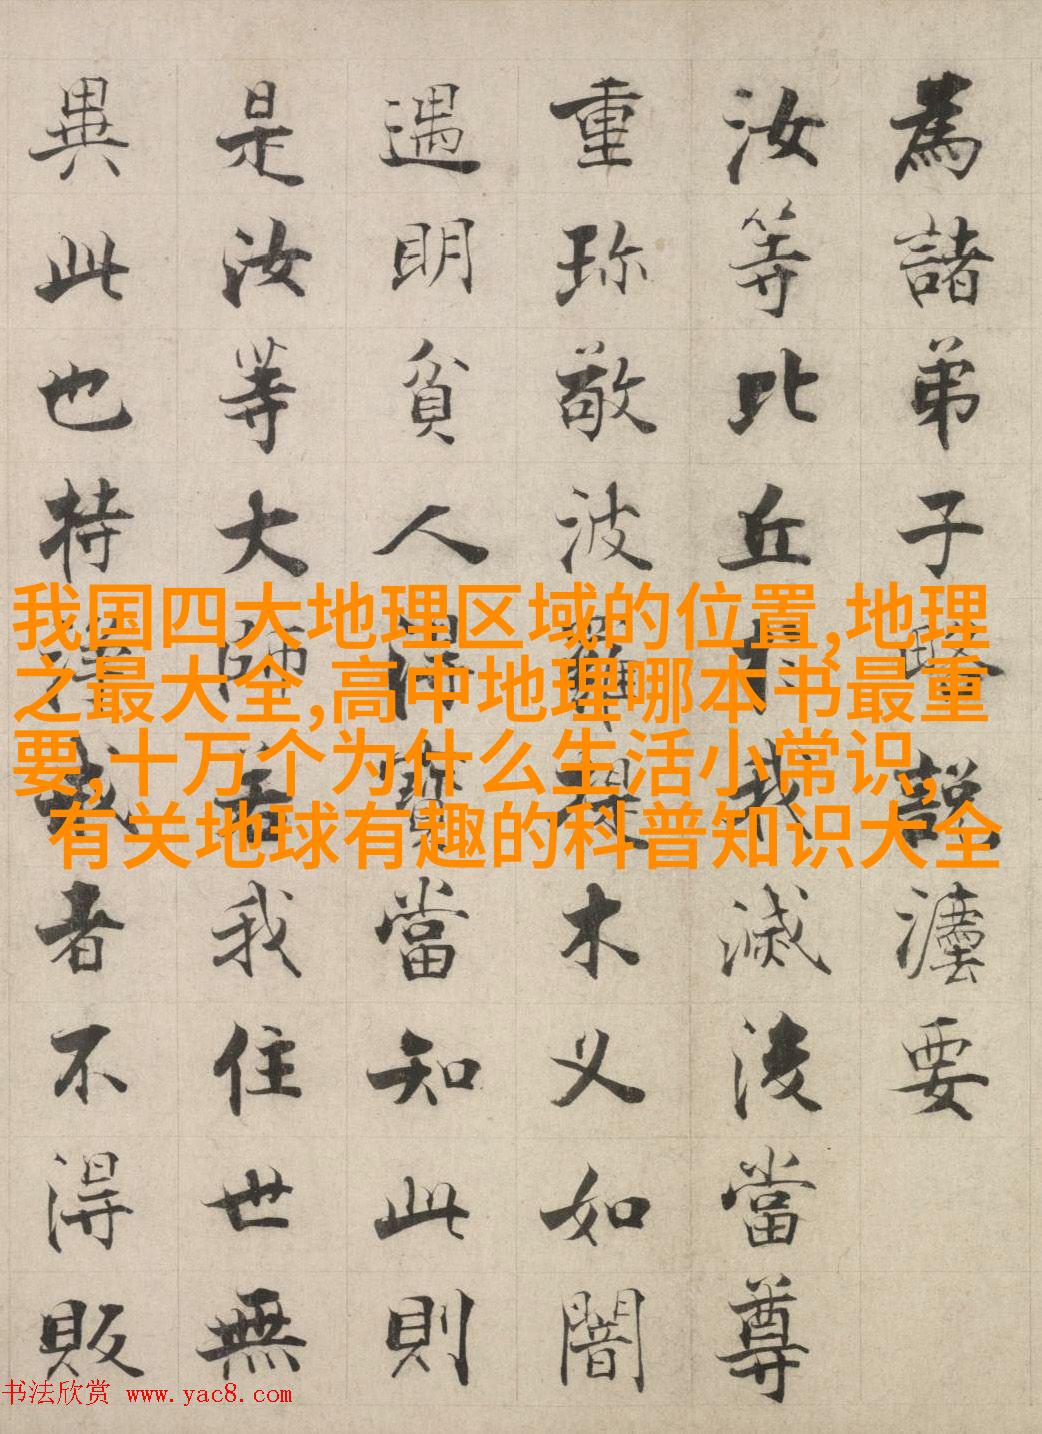 為諸弟子略說灋要
汝等比丘於我滅後當尊
重珎敬波羅提木叉如闇
遇明貧人得寶當知此則
是汝等大師若我住世無
異此也持淨戒者不得販
我国四大地理区域的位置,地理
之最大全,高中地理哪本书最重
要,十万个为什么生活小常识,
有关地球有趣的科普知识大全
书法欣赏 www.yac8.com